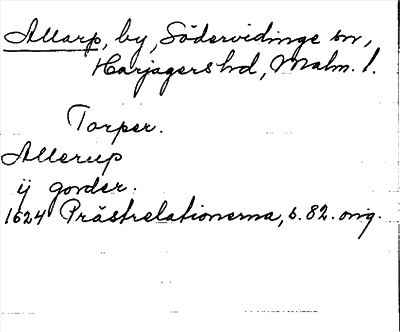 Allarp, by, Södervidinge sn,
Harjagers hd, Malm. l.
Torper.
Allerup
ij gorder.
1624 Prästrelationerna, s. 82. orig.